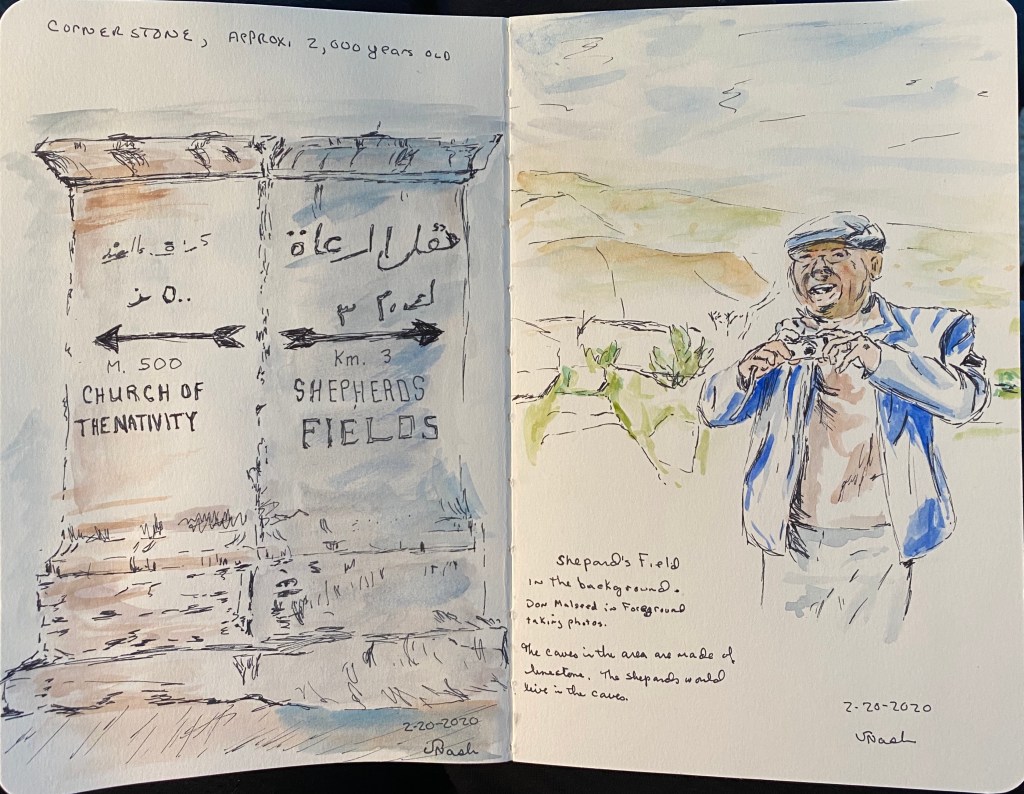 CORNERSTONE, APPROX. 2,000 years OLD
M. 500
CHURCH OF
THE NATIVITY
Km. 3
SHEPHERDS
FIELDS
2-20-2020
Shepard's Field
in the background.
Don Malseed in Foreground
taking photos.
The caves in the area are made of
limestone. The shepards would
live in the caves.
2-20-2020